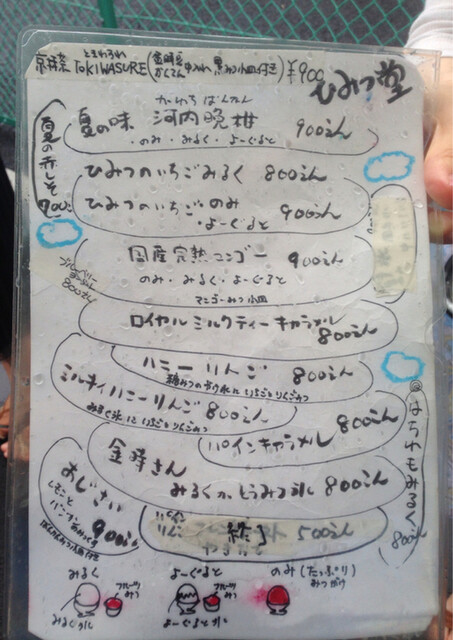 ときわすれ
TOKIWASURE
黒みつ小皿付き) ¥900
ひみつ堂
夏の赤しそ
900
かわちばんかん
夏の味 河内晩柑 900えん
・のみ・みるく・よーぐると
ひみつのいちごみるく 800えん
ひみつのいちごのみ
・よーぐると 900えん
国産完熟マンゴー 900えん
・のみ・みるく・よーぐると
マンゴーみつ小皿
800えん
ロイヤルミルクティーキャラメル
800えん
ハニーりんご 800えん
ミルキィハニーりんご 800えん
みるく氷にいちごとりんごみつ
パインキャラメル 800えん
@はちみもみるく 800えん
金時さん
みるく か しろみつ氷 800えん
あじさい 900えん
しそと
りんご
終了
500えん
みるく
フルーツみつ
みるく氷
よーぐると
フルーツみつ
よーぐると氷
のみ (たっぷり)
みつがけ